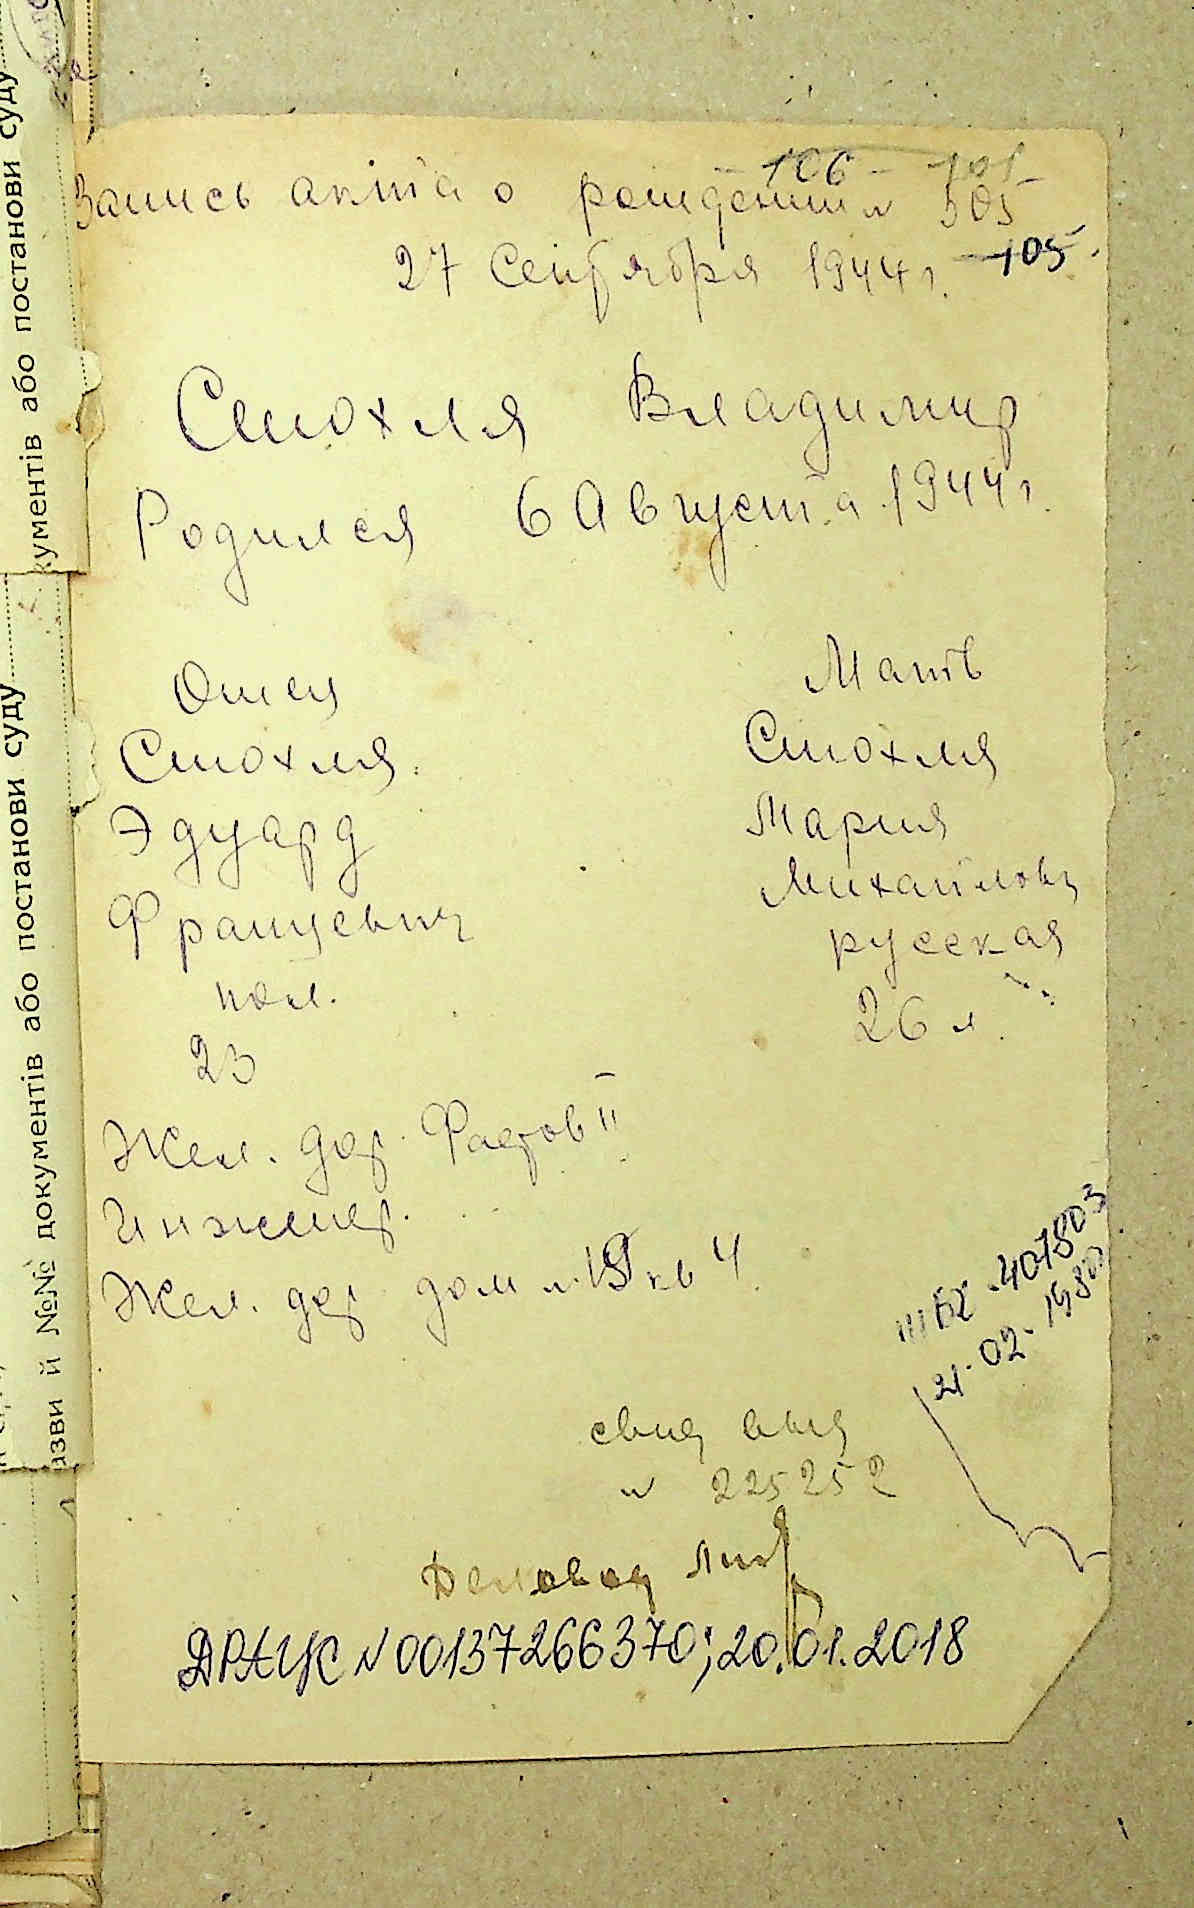 106 101
Запись акта о рождении № 505
27 Сентября 1944 г. 105
Стохля Владимир
Родился 6 Августа 1944 г
Отец
Стохля
Эдуард
Францевич
пол.
23
Мать
Стохля
Мария
Михайловн
русская
26 л.
Жел. дор. Фастов II
Инженер.
Жел. дор дом № 19 кв 4
III БК 407803
21.02.1980
свид выд
№ 225252
Деловод
ДРАЦС N 00137266370; 20.01.2018
суду
документів або постанови
суду
назви й №№ документів або постанови